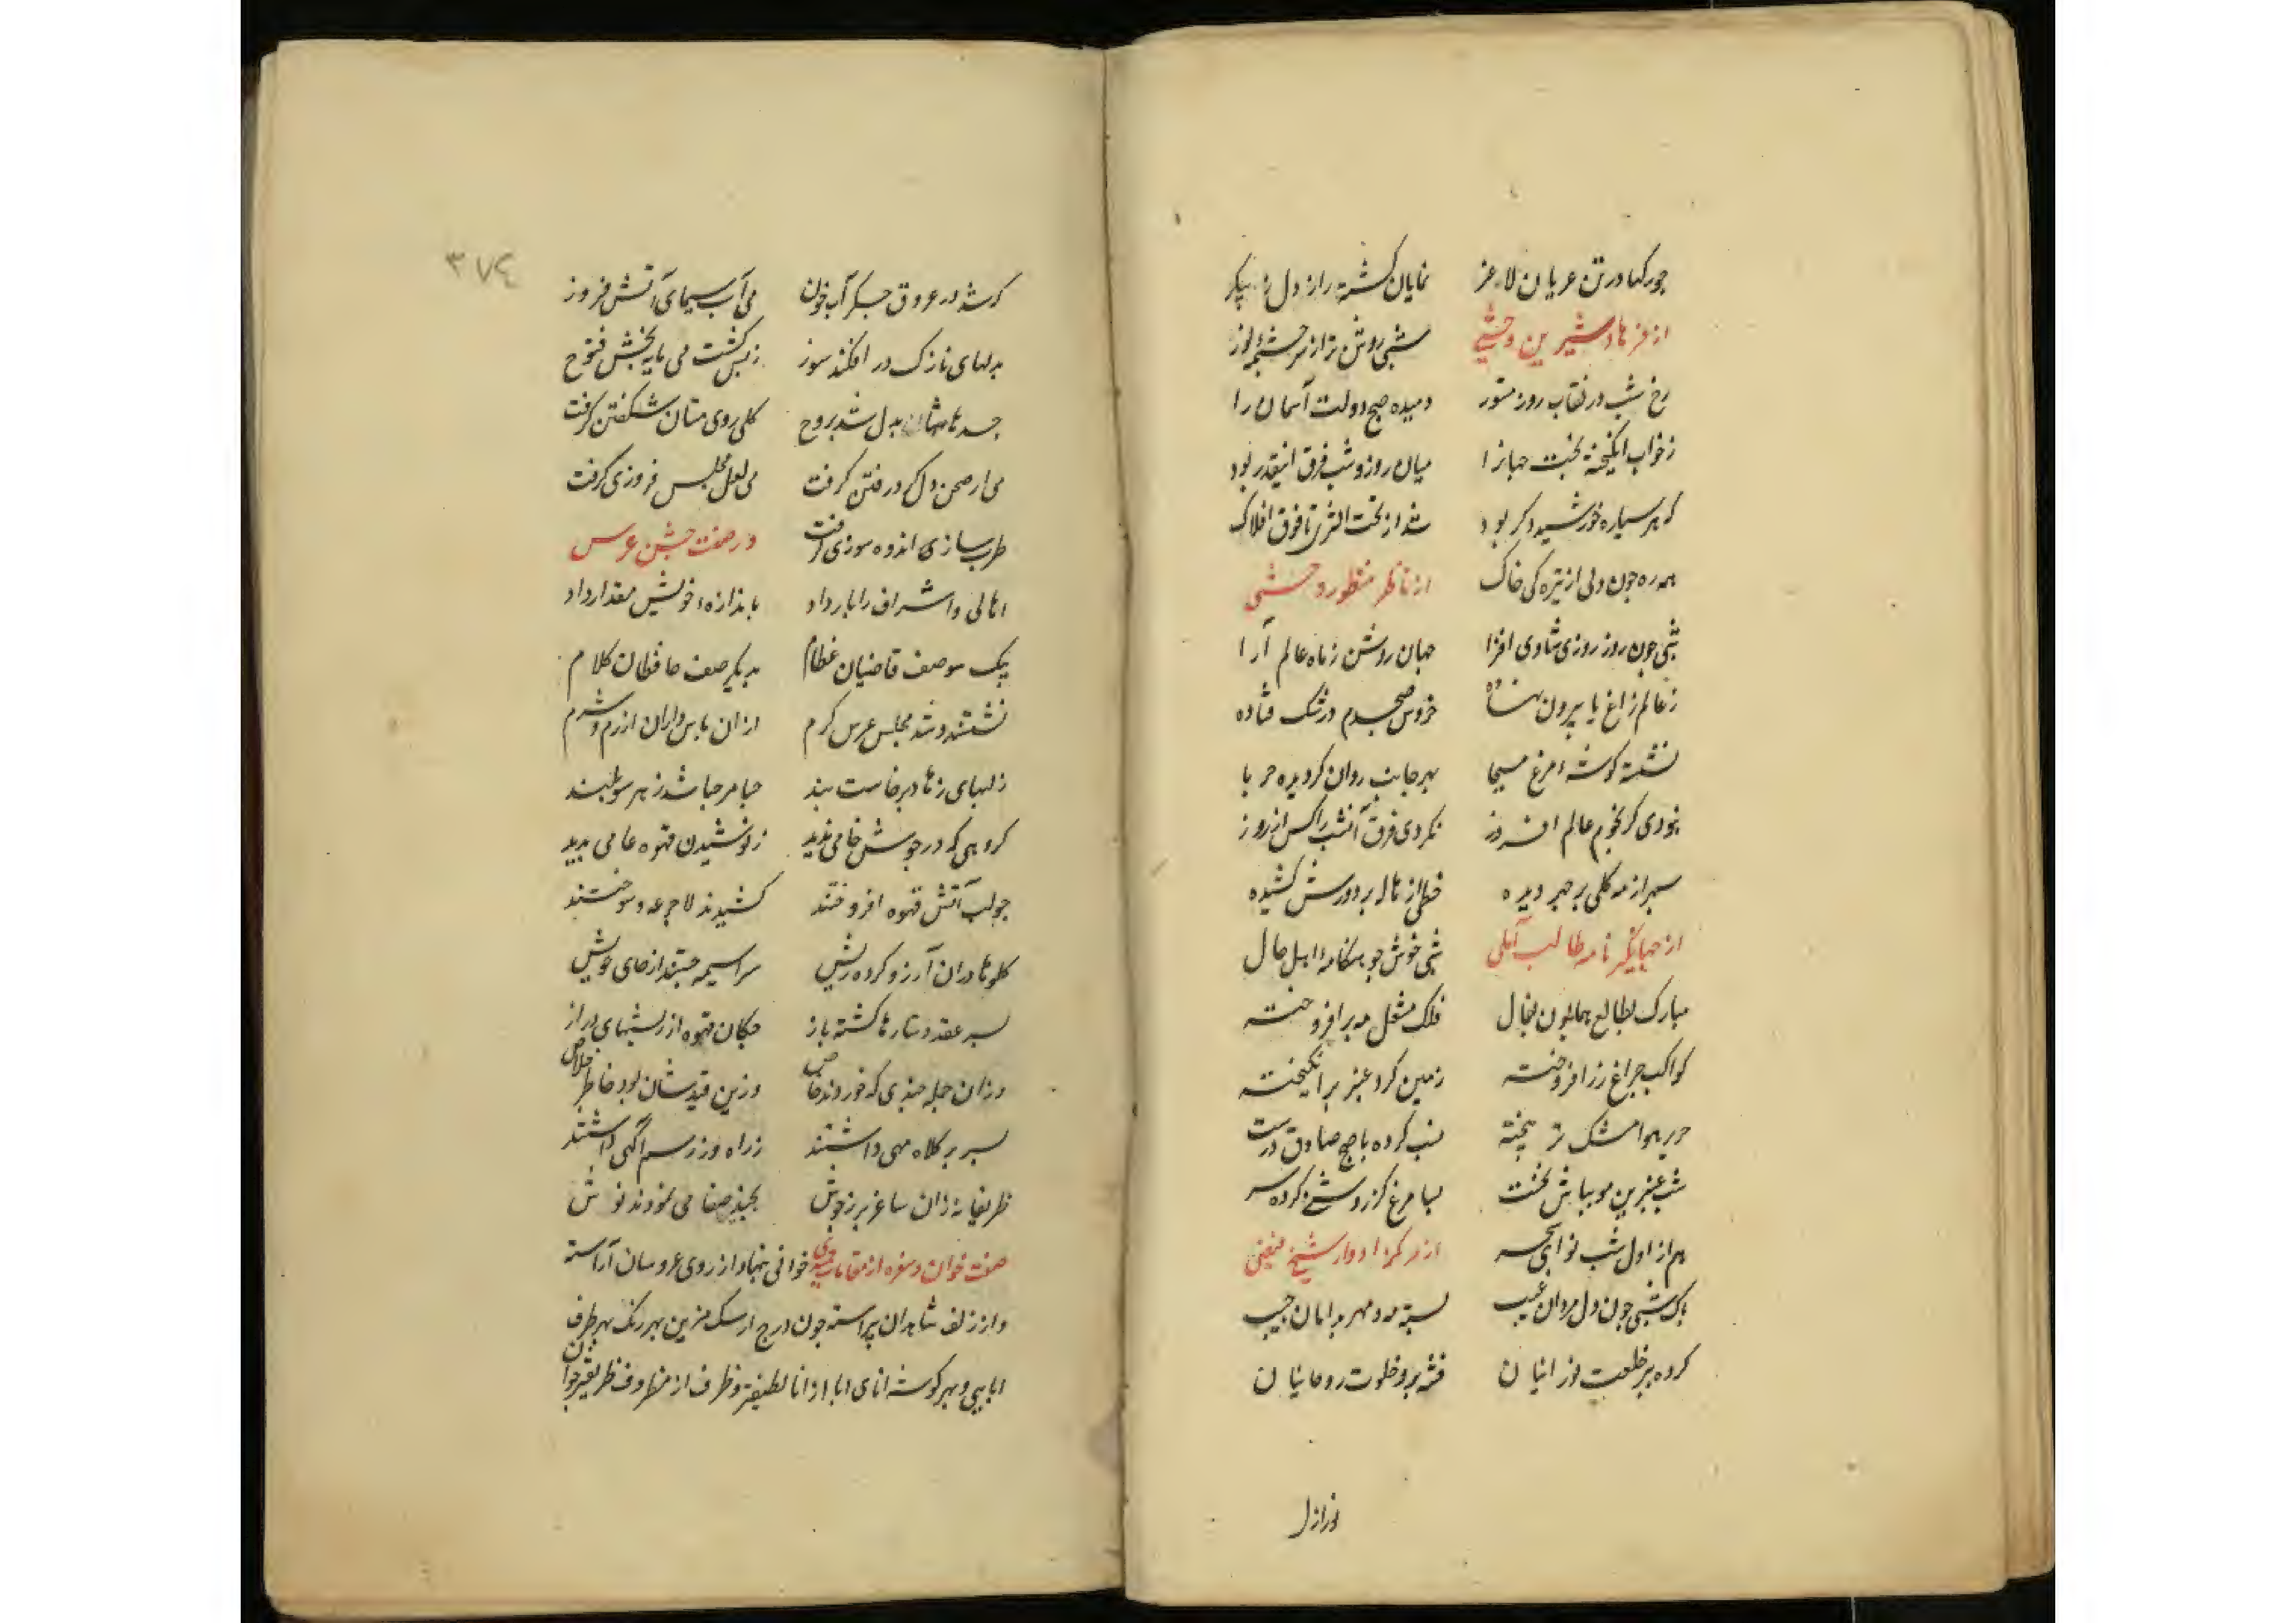 چو رکها در تن عریان لاغر نمایان کشته راز دل ز پیکر
از فرهاد و شیرین وحشی شبی روشن تر از سرچشمه نور
رخ شب در نقاب روز مستور دمیده صبح دولت آسمان را
ز خواب انکیخته بخت جهانرا میان روز و شب فرق اینقدر بود
که هر سیاره خورشید دکر بود شد از تحت الثری تا فوق افلاک
همه ره چون دلی از تیره کی خاک از ناظر منظور وحشی
شبی چون روز روزی شادی افزا جهان روشن ز ماه عالم آرا
ز عالم زاغ پا بیرون نهاده خروس صبحدم در شک فتاده
نشسته کوشه مرغ مسیحا بهر جانب روان کردیده حربا
نکردی فرق آنشب را کس از روز
سپهر از مه کلی بر چهر دیده خطی از هاله بر دورش کشیده
از جهانکیر نامه طالب آملی شبی خوش چو هنکامه اهل حال
مبارک بطالع همایون بفال فلک مشعل مه برافروخته
کواکب چراغ زر افروخته زمین کرد عنبر برانکیخته
حریر هوا مشک تر بیخته نسب کرده با صبح صادق درست
شب عنبرین مو بیاض نخست بسا مرغ کز روشنی کرده سر
هم از اول شب نوای سحر از مرکز ادوار شیخ فیضی
یک شبی چون دل مردان غیب بسته مه و مهر بدامان جیب
کرده ببر خلعت نورانیان فتنه برو خلوت روحانیان
نور از ل
۳۷٤
که شد در عروق جکر آب خون می آب سیمای آتش فروز
بدلهای نازک در افکند سوز ز بس کشت می مایه بخش فتوح
جسدهایشان بدل شد بروح کل روی مستان شکفتن کرفت
می از صحن دل کرد رفتن کرفت می لعل مجلس فروزی کرفت
طرب سازی اندوه سوزی کرفت در صفت جشن عرس
اهالی و اشراف را بار داد باندازه خویش مقدار داد
بیک سو صف قاضیان عظام بدیکر صف حافظان کلام
نشستند و شد مجلس عرس کرم
ز لبهای زهاد برخاست بند حیا مرحبا شد ز هر سو بلند
کروهی که در جوش خامی پدید ز نوشیدن قهوه عامی پدید
چو لب آتش قهوه افروختند کشیدند لاجرعه و سوختند
کلوها در آن آرزو کرده ریش سراسیمه جستند از جای خویش
بسر عقد دستارها کشته باز چکان قهوه از ریشهای دراز
وزان جمله چندی که خوردند خاص وزین قید شان بود خاطر خلاص
بسر بر کلاه مهی داشتند ز راه و ز رسم آکهی داشتند
ظریفانه زان ساغر پر ز جوش بجذب صفا می نمودند نوش
صفت خوان و سفره از مقامات حمیدی خوانی بنهاد از روی عروسان آراسته
و از زلف شاهدان پیراسته چون درج از سک مزین بهر رنک بهر طرف
ابایی و بهر کوشه انای ابا از انا لطیفتر و ظرف از مظروف ظریفتر چون